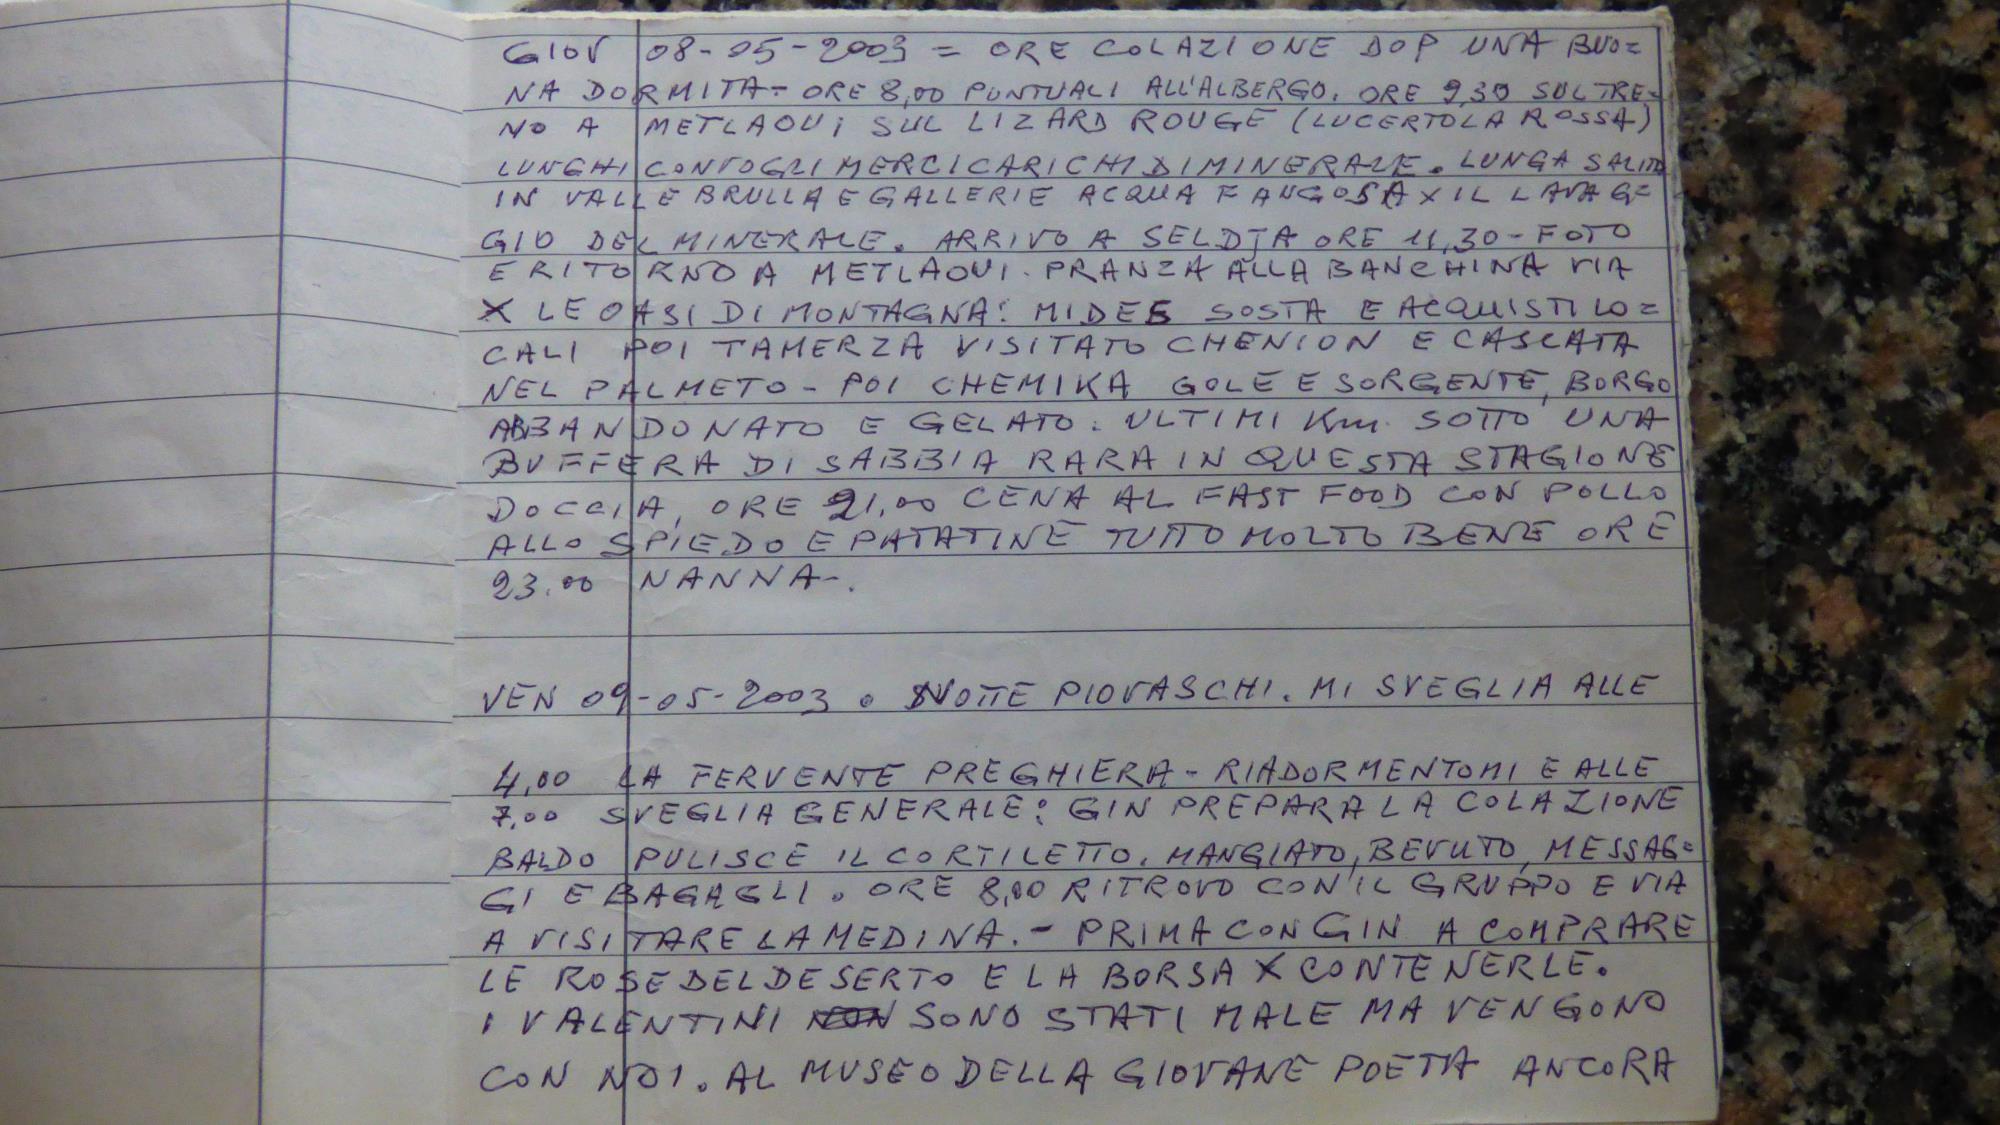 GIOV 08-05-2003 = ORE COLAZIONE DOP UNA BUO=
NA DORMITA- ORE 8,00 PUNTUALI ALL'ALBERGO. ORE 9,30 SUL TRE=
NO A METLAOUI SUL LIZARD ROUGE (LUCERTOLA ROSSA)
LUNGHI CONVOGLI MERCI CARICHI DI MINERALE. LUNGA SALITA
IN VALLE BRULLA E GALLERIE ACQUA FANGOSA X IL LAVAG=
GIO DEL MINERALE. ARRIVO A SELDJA ORE 11,30 - FOTO
E RITORNO A METLAOUI. PRANZA ALLA BANCHINA VIA
X LE OASI DI MONTAGNA: MIDES SOSTA E ACQUISTI LO=
CALI POI TAMERZA VISITATO CHENION E CASCATA
NEL PALMETO - POI CHEMIKA GOLE E SORGENTE, BORGO
ABBANDONATO E GELATO. ULTIMI Km. SOTTO UNA
BUFFERA DI SABBIA RARA IN QUESTA STAGIONE
DOCCIA, ORE 21,00 CENA AL FAST FOOD CON POLLO
ALLO SPIEDO E PATATINE TUTTO MOLTO BENE ORE
23.00 NANNA-.
VEN 09-05-2003 . NOTTE PIOVASCHI. MI SVEGLIA ALLE
4,00 LA FERVENTE PREGHIERA - RIADORMENTOMI E ALLE
7,00 SVEGLIA GENERALE: GIN PREPARA LA COLAZIONE
BALDO PULISCE IL CORTILETTO. MANGIATO, BEVUTO, MESSAG=
GI E BAGAGLI. ORE 8,00 RITROVO CON IL GRUPPO E VIA
A VISITARE LA MEDINA. - PRIMA CON GIN A COMPRARE
LE ROSE DEL DESERTO E LA BORSA X CONTENERLE.
I VALENTINI NON SONO STATI MALE MA VENGONO
CON NOI. AL MUSEO DELLA GIOVANE POETA ANCORA